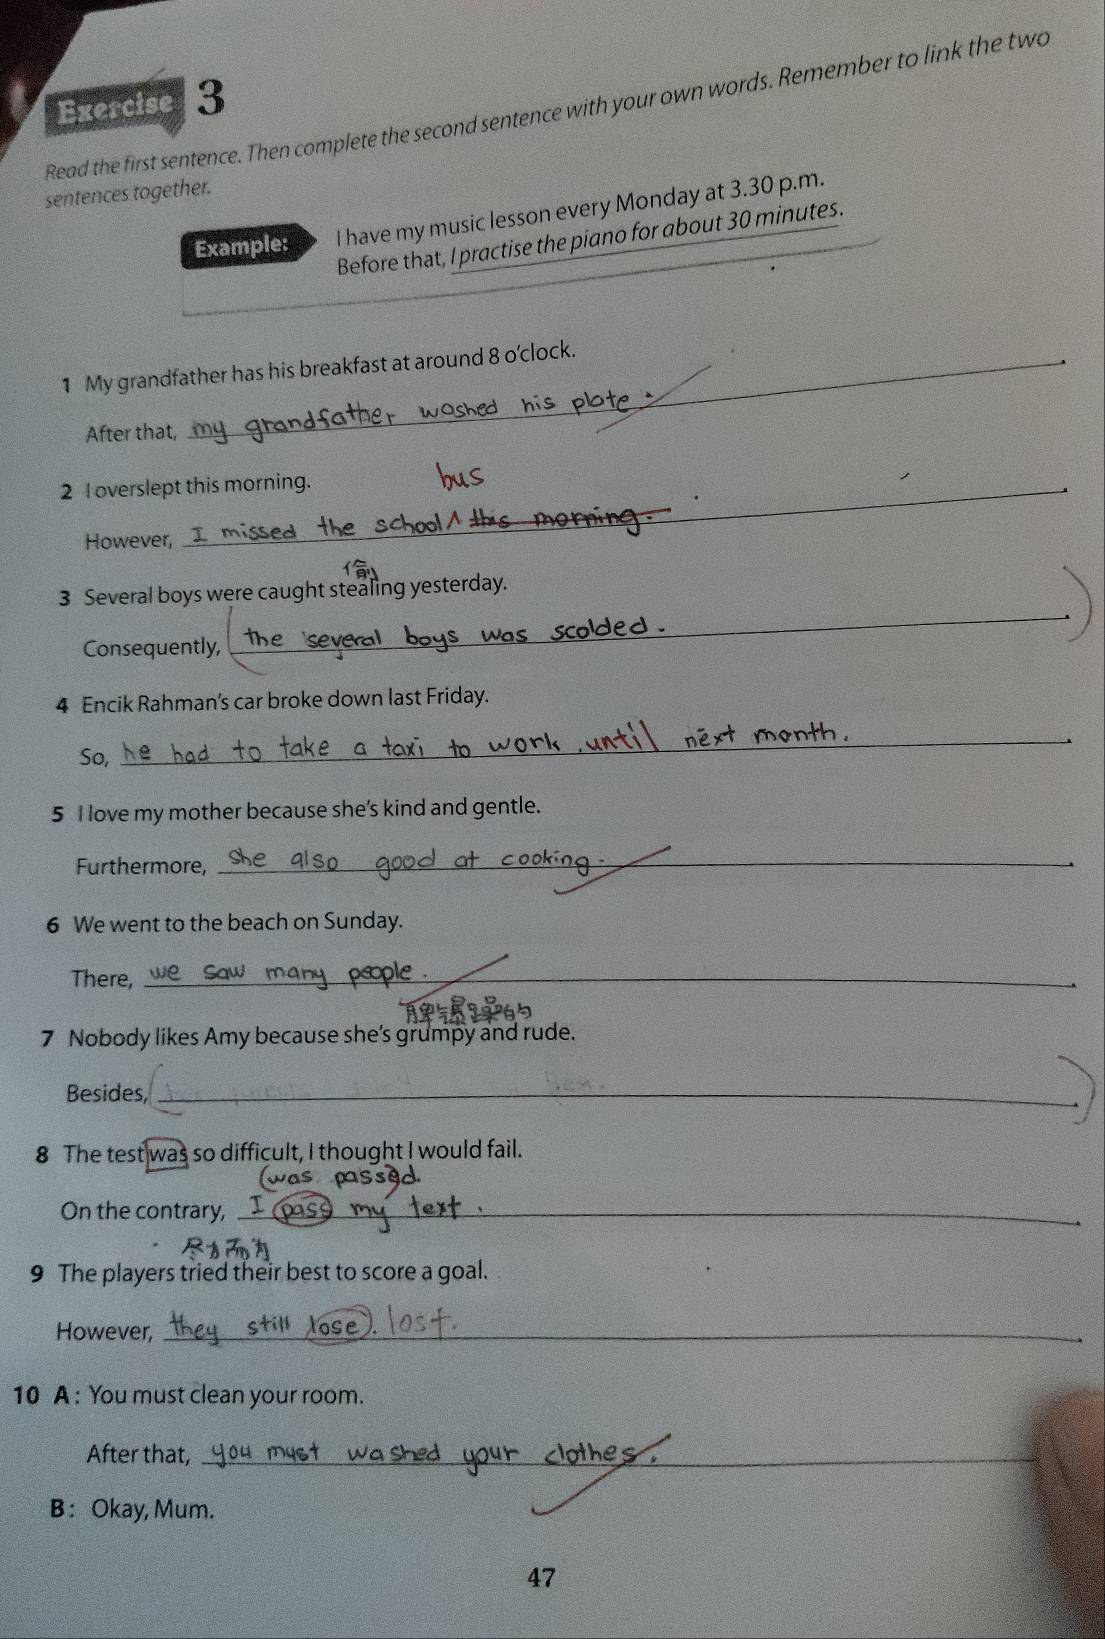 Exercise 3
Read the first sentence. Then complete the second sentence with your own words. Remember to link the two
sentences together.
Example: I have my music lesson every Monday at 3.30 p.m.
Before that, I practise the piano for about 30 minutes.
1 My grandfather has his breakfast at around 8 o'clock.
After that, my grandfather washed his plate.
2 I overslept this morning.
bus
However, I missed the school ^ this morning.
偷
3 Several boys were caught stealing yesterday.
Consequently, the several boys was scolded.
4 Encik Rahman's car broke down last Friday.
So, he had to take a taxi to work. until next month.
5 I love my mother because she's kind and gentle.
Furthermore, She also good at cooking.
6 We went to the beach on Sunday.
There, we saw many people.
脾气暴躁的
7 Nobody likes Amy because she's grumpy and rude.
Besides,
8 The test was so difficult, I thought I would fail.
(was passed.
On the contrary, I pass my text.
尽力而为
9 The players tried their best to score a goal.
However, they still lose. lost.
10 A : You must clean your room.
After that, you must washed your clothes.
B : Okay, Mum.
47